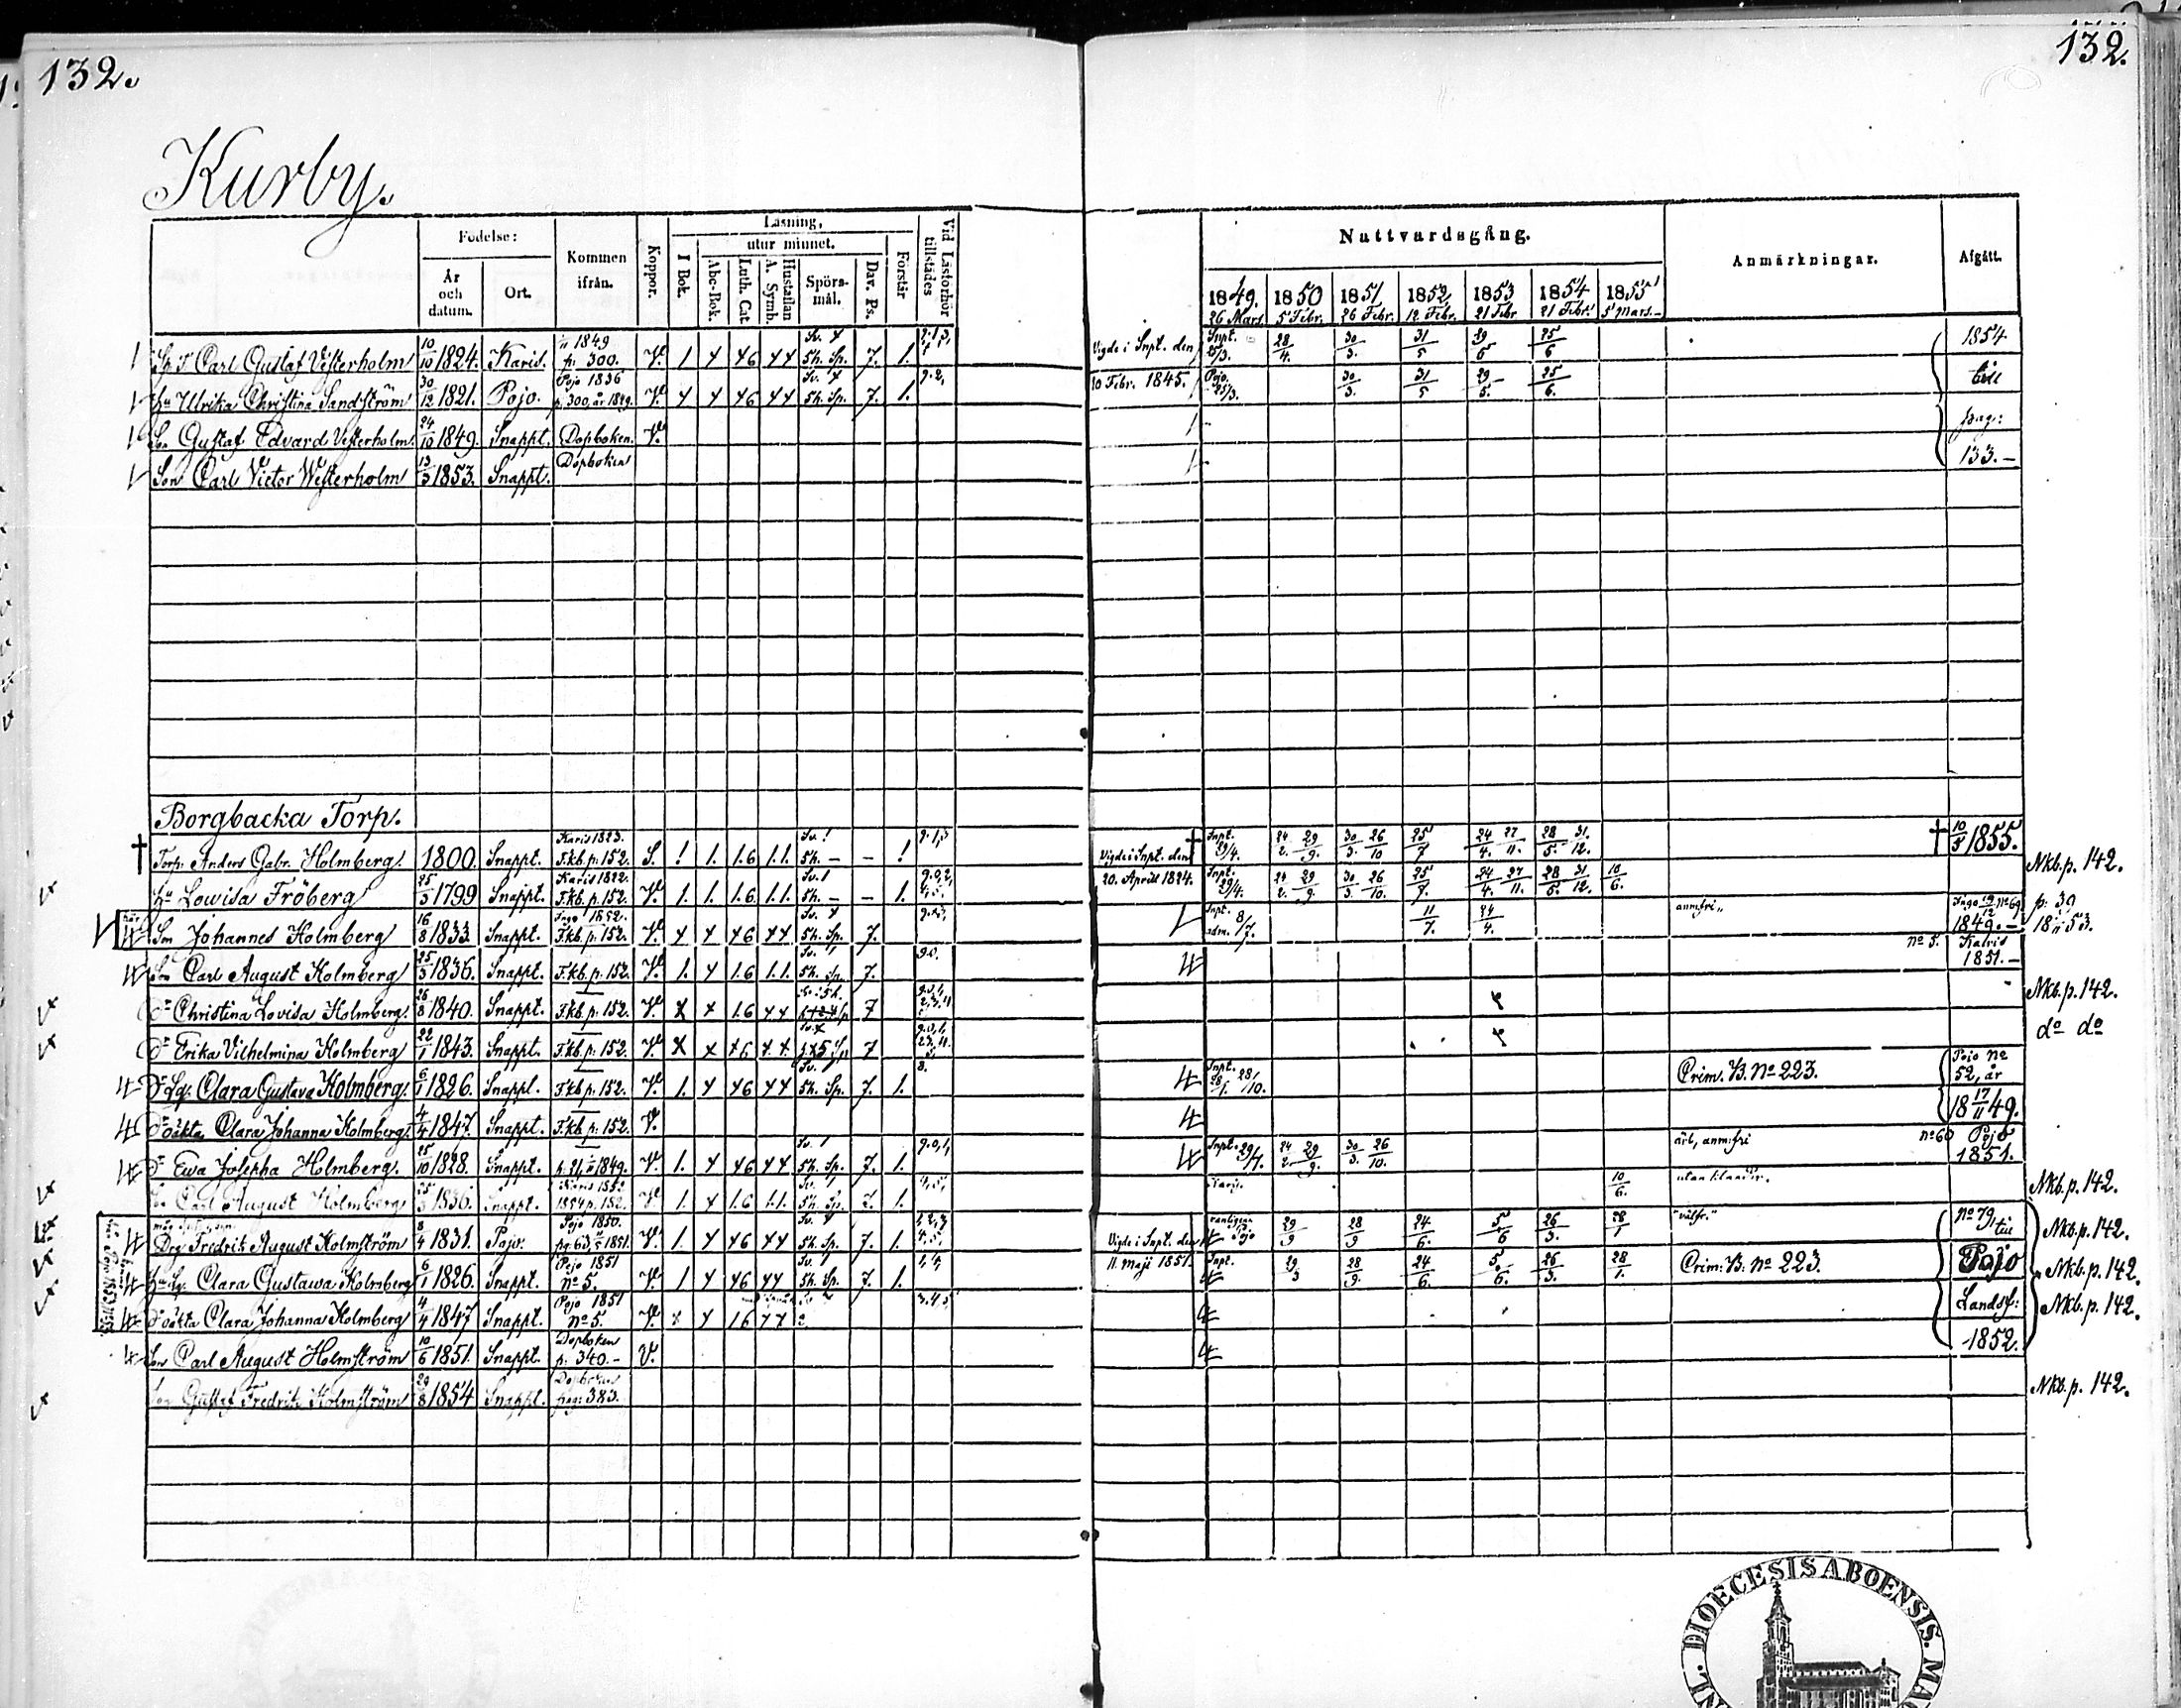 132.
132.
Kurby.
Födelse:
År och datum.
Ort.
Kommen ifrån.
Koppor.
Läsning,
I Bok.
utur minnet.
Abc-Bok.
Luth. Cat.
Hustaflan A. Symb.
Spörs-mål.
Dav. Ps.
Förstår
Vid Läsförhör tillstädes
Nattvardsgång.
1849. 26 Mars
1850 5 Febr.
1851. 26 Febr.
1852. 12 Febr.
1853 21 Febr
1854 21 Febr.
1855 5 Mars.-
Anmärkningar.
Afgått.
Carl Gustaf Vesterholm 10/10 1824. Karis. 1849 p. 300. V. 1 x x6 xx Sv. x 5h. Sp. 7. 1. Vigde i Snpt. den Snpt. 25/3. 28/4. 30/3. 31/5 29/5 25/6 1854
Hu Ulrika Christina Sandström 30/12 1821. Pojo. Pojo 1836 p. 300, år 1849. V. x x x6 xx Sv. x 5h. Sp. 7. 1. 10 Febr. 1845. Pojo. 25/3. 30/3. 31/5 29/5. 25/6. till
Son Gustaf Edvard Vesterholm. 24/10 1849. Snappt. Dopboken. V. pag:
Son Carl Victor Westerholm 13/3 1853. Snappt. Dopboken 133.-
Borgbacka Torp.
† Torp. Anders Gabr. Holmberg. 1800. Snappt. Karis 1823. F.kb. p. 152. S. ! 1. 1.6 1.1. Sv. ! 5h. - - ! Vigde i Snpt. den Snpt. 29/4. 24/2. 29/9. 30/3. 26/10 25/7 24/4. 27/11. 28/5 31./12. † 10/5 1855.
Hu Lowisa Fröberg 25/3 1799 Snappt. Karis 1822. F.kb. p. 152. V. 1. 1. 1.6 1.1. Sv. 1 5h. - - 1. 20. Aprill 1824. Snpt. 29/4. 24/2. 29/9. 30/3. 26/10. 25/7. 24/4. 27/11. 28/5. 31/12. 10/6. Nkb. p. 142.
Son Johannes Holmberg 16/8 1833. Snappt. Ingo 1852. F.kb. p. 152. V. x x x6 xx Sv. x 5h. Sp. 7. Snpt. adm. 8/7. 11/7. 24/4. anmfri Ingo No 69 1849.- p. 39 18 53.
Son Carl August Holmberg 25/3 1836. Snappt. F.kb. p. 152. V. 1. x 1.6 1.1. Sv. 1 5h. Sp. 7. No 5. Karis 1851.-
Dr Christina Lovisa Holmberg 26/8 1840. Snappt. F.kb. p. 152. V. x x 1.6 xx 7 Nkb. p. 142.
Dr Erika Vilhelmina Holmberg 22/1 1843. Snappt. F.kb. p. 152. V. x x x6 x.x. 7 do do
Dr Lg. Clara Gustava Holmberg. 6/1 1826. Snappt. F.kb. p. 152. V. 1. x x6 xx Sv. 1 5h. Sp. 7. 1. 8. Snpt. 28/10. Crim. B. No 223. Pojo No 52, år
Dr oäkta Clara Johanna Holmberg. 4/4 1847. Snappt. F.kb. p. 152. V. 18 17/11 49.
Dr Ewa Josepha Holmberg. 25/10 1828. Snappt. 1849. V. 1. x x6 xx Sv. 1 5h. Sp. 7. 1. Snpt. 29/7. 24/2. 29/9. 30/3. 26/10. ärl, anmfri No 60 Pojo 1851.
Son Carl August Holmberg 25/3 1836. Snappt. Karis 1852 1854 p. 152. V. 1. x 1.6 1.1. 5h. Sp. 7. 1. Karis. 10/6. Nkb. p. 142.
Drg Fredrik August Holmström 8/4 1831. Pojo. Pojo 1850. V. 1. x x6 xx Sv. x 5h. Sp. 7. 1. Vigde i Snpt. den Pojo 29/9 28/9 24/6. 5/6 26/3. 28/1 "välfr." No 79, till Nkb. p. 142.
Hu Lg. Clara Gustawa Holmberg 6/1 1826. Snappt. Pojo 1851 No 5. V. 1 x x6 xx Sv. 1 5h. Sp. 7. 1. 11. Maji 1851. Snpt. 29/3 28/9. 24/6. 5/6. 26/3. 28/1. Crim. B. No 223. Pojo Nkb. p. 142.
Dr oäkta Clara Johanna Holmberg 4/4 1847 Snappt. Pojo 1851 No 5. V. x x 16 xx 3.4.5 Landsf: Nkb. p. 142.
Son Carl August Holmström 10/6 1851. Snappt. Dopboken p. 340.- V. 1852.
Son Gustaf Fredrik Holmström 29/8 1854 Snappt. Dopboken pag: 383. Nkb. p. 142.
DIOECESIS ABOENSIS.